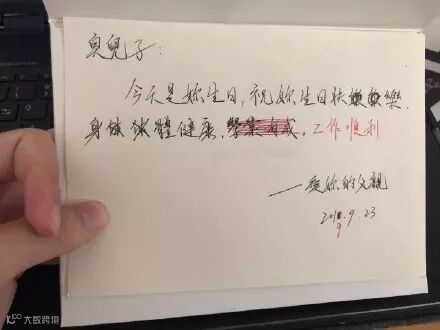 臭兒子：
今天是妳生日，祝妳生日快樂，
身體健康，學業有成。工作順利
——愛妳的父親
2019.9.23
大数跨境